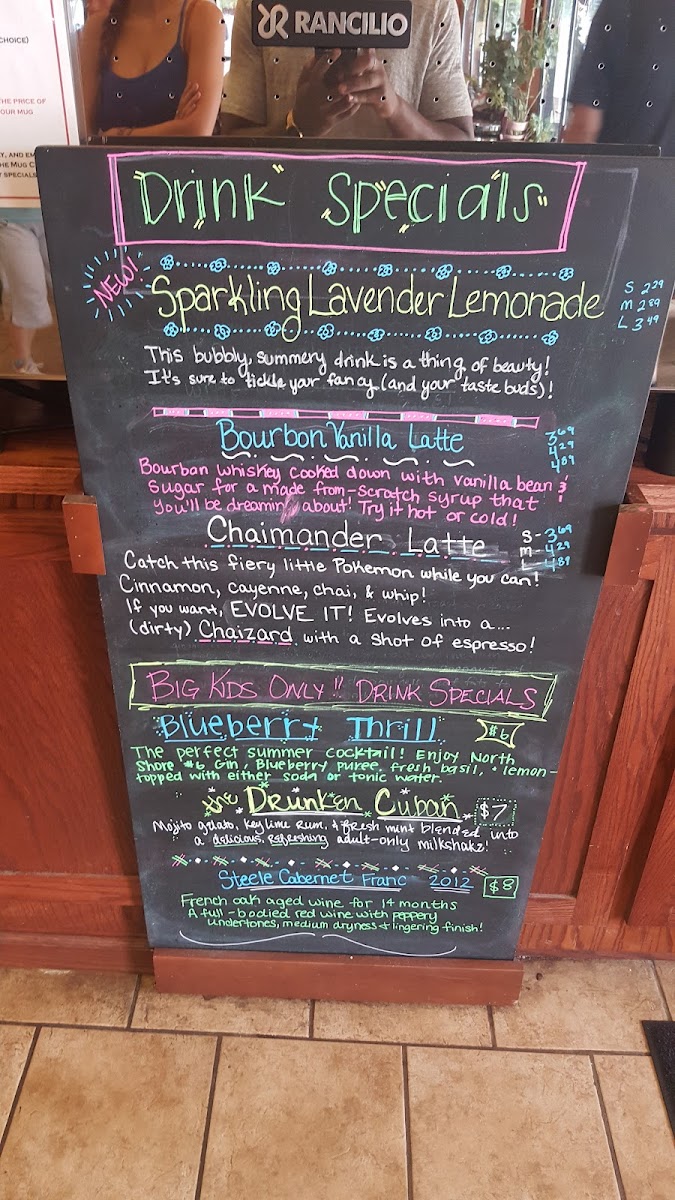 RANCILIO
CHOICE)
THE PRICE OF
OUR MUG
Y, AND
THE MUG C
SPECIALS
Drink Specials
NEW!
Sparkling Lavender Lemonade
S 2.29
M 2.89
L 3.49
This bubbly, summery drink is a thing of beauty!
It's sure to tickle your fancy (and your taste buds)!
Bourbon Vanilla Latte
3.69
4.29
4.89
Bourbon whiskey cooked down with vanilla bean &
sugar for a made from-scratch syrup that
you'll be dreaming about! Try it hot or cold!
Chaimander Latte
S - 3.69
M - 4.29
L - 4.89
Catch this fiery little Pokemon while you can!
Cinnamon, cayenne, chai, & whip!
If you want, EVOLVE IT! Evolves into a...
(dirty) Chaizard with a shot of espresso!
BIG KIDS ONLY!! DRINK SPECIALS
Blueberry Thrill
$6
The perfect summer cocktail! Enjoy North
Shore #6 Gin, Blueberry puree, fresh basil, + lemon -
topped with either soda or tonic water
the Drunken Cuban
$7
Mojito gelato, Key lime Rum, & fresh mint blended into
a delicious, refreshing adult-only milkshake!
Steele Cabernet Franc 2012
$8
French oak aged wine for 14 months
A full-bodied red wine with peppery
undertones, medium dryness + lingering finish!